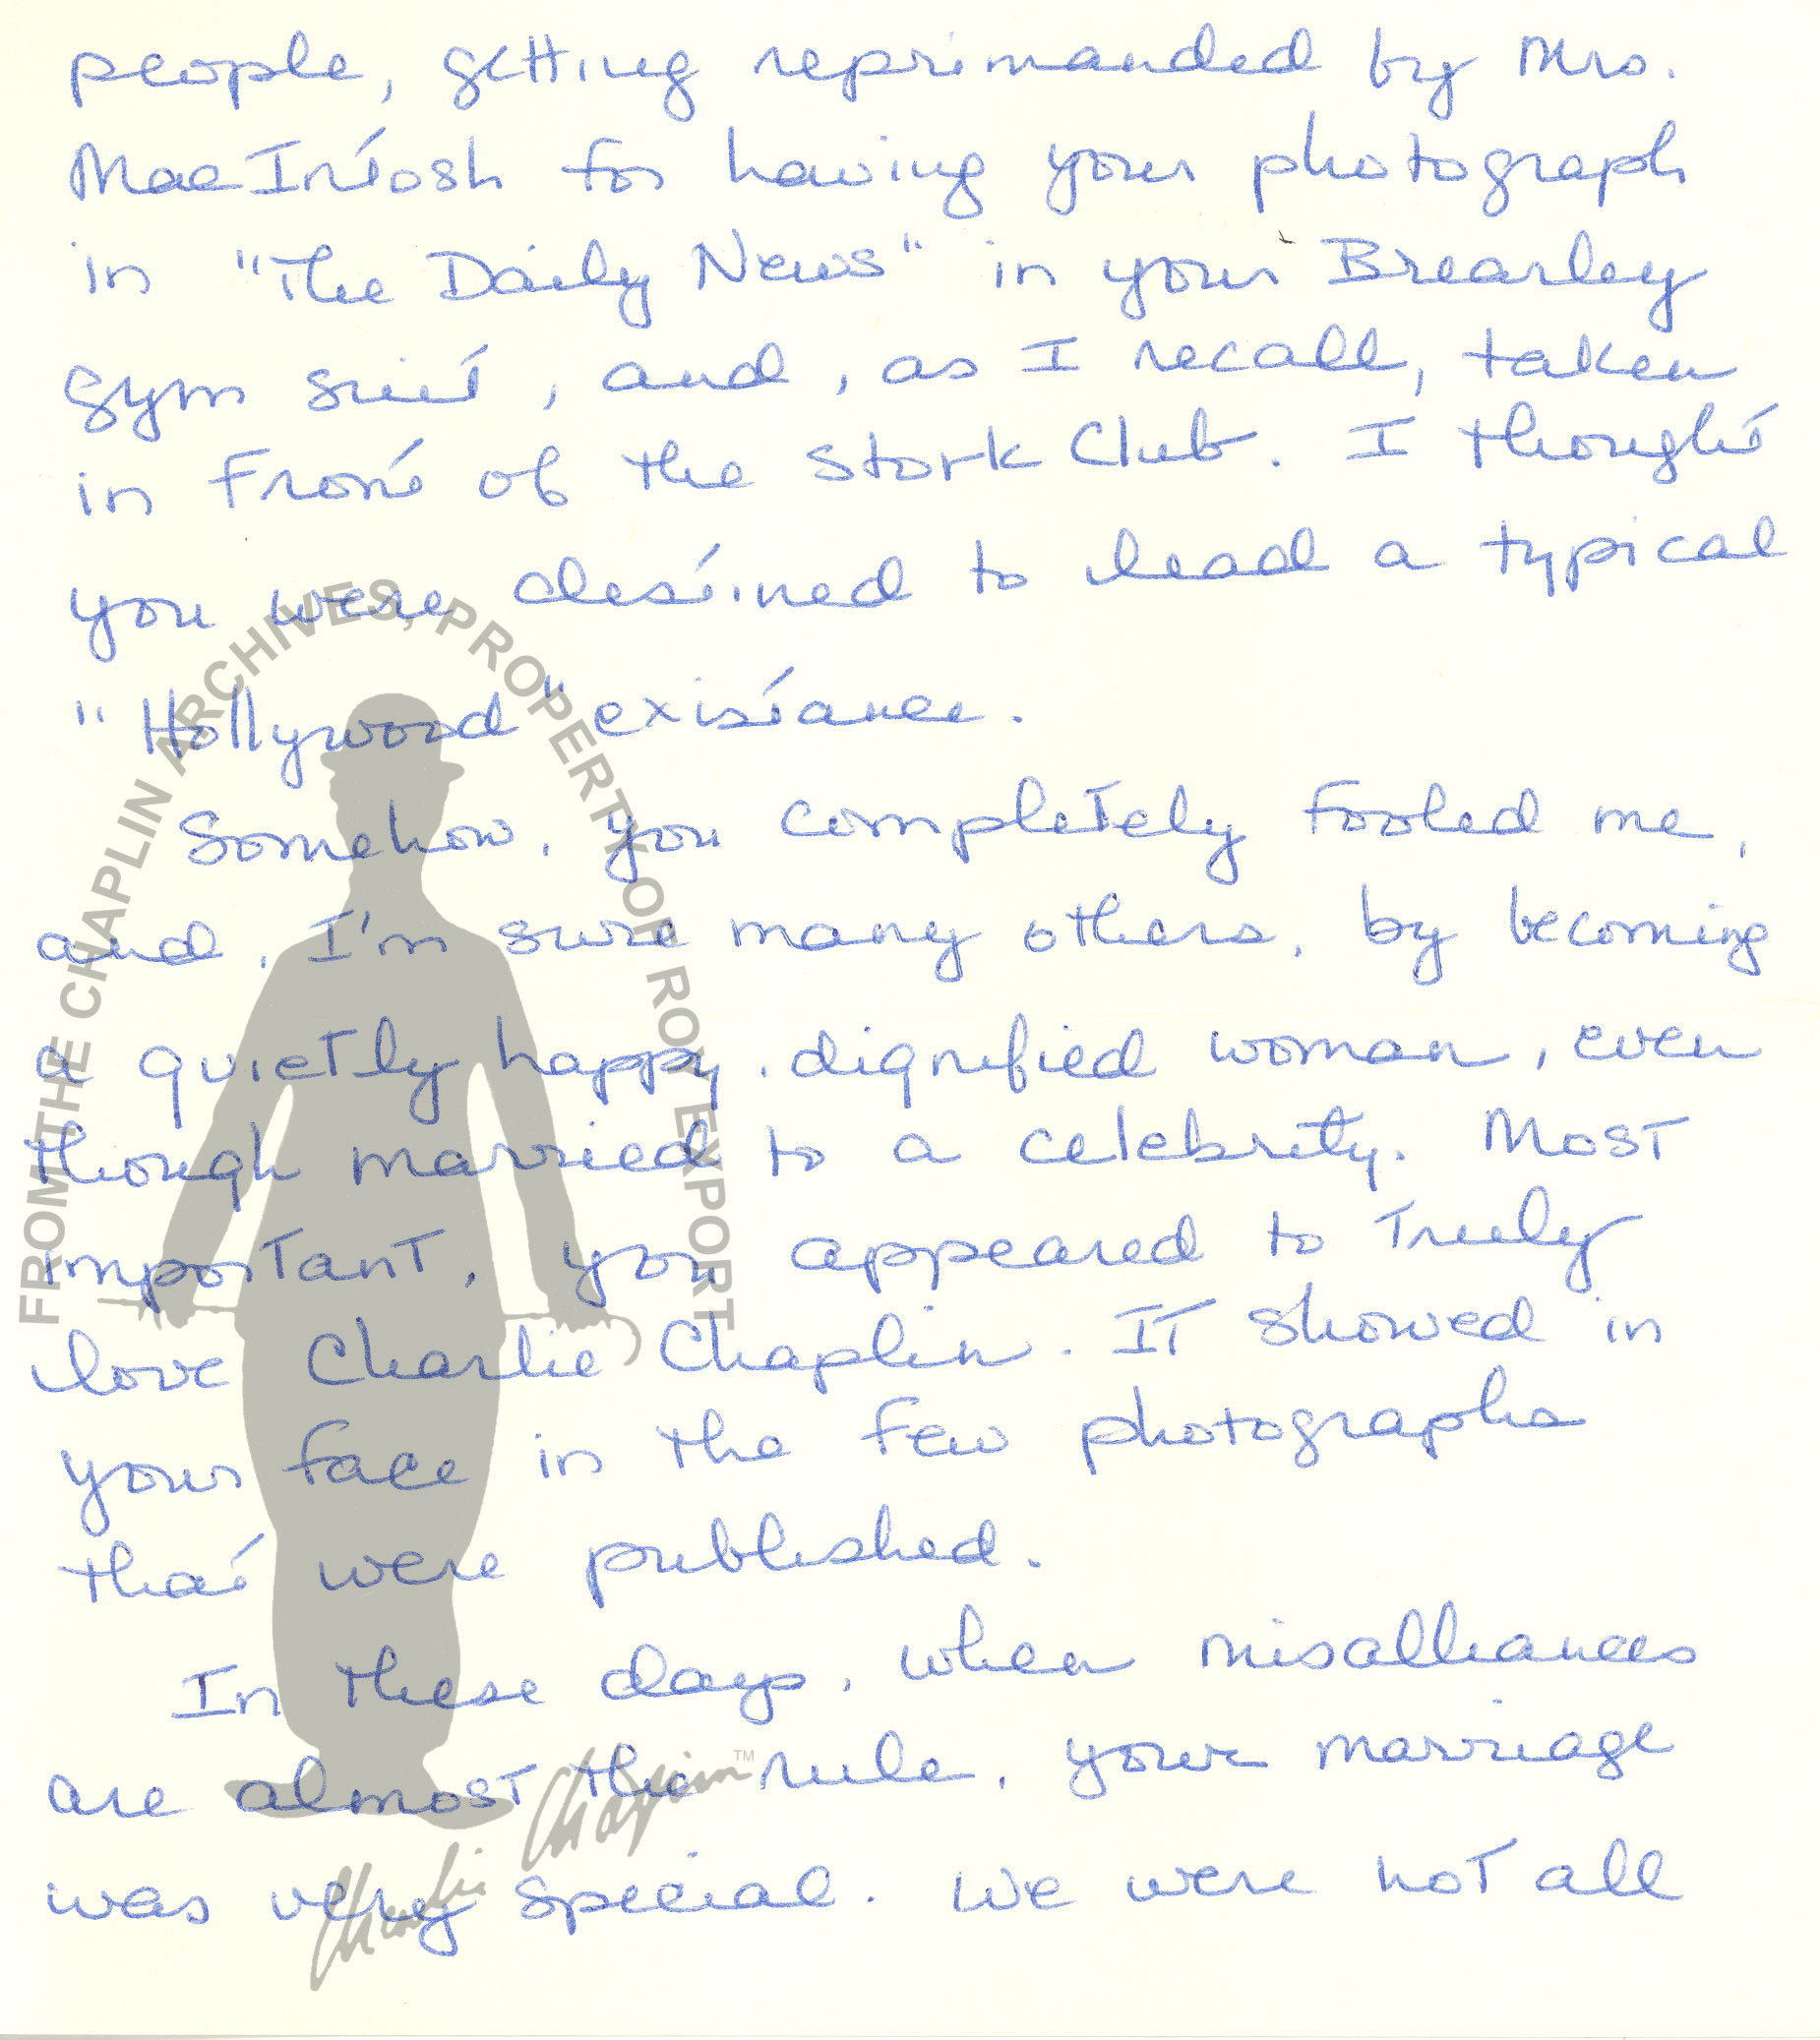 people, getting reprimanded by Mrs.
MacIntosh for having your photograph
in "The Daily News" in your Brearley
gym suit, and, as I recall, taken
in front of the Stork Club. I thought
you were destined to lead a typical
"Hollywood" existance.
Somehow, you completely fooled me,
and, I'm sure many others, by becoming
a quietly happy, dignified woman, even
though married to a celebrity. Most
important, you appeared to truely
love Charlie Chaplin. It showed in
your face in the few photographs
that were published.
In these days, when misalliances
are almost the rule, your marriage
was very special. We were not all
FROM THE CHAPLIN ARCHIVES, PROPERTY OF ROY EXPORT
Charlie Chaplin™